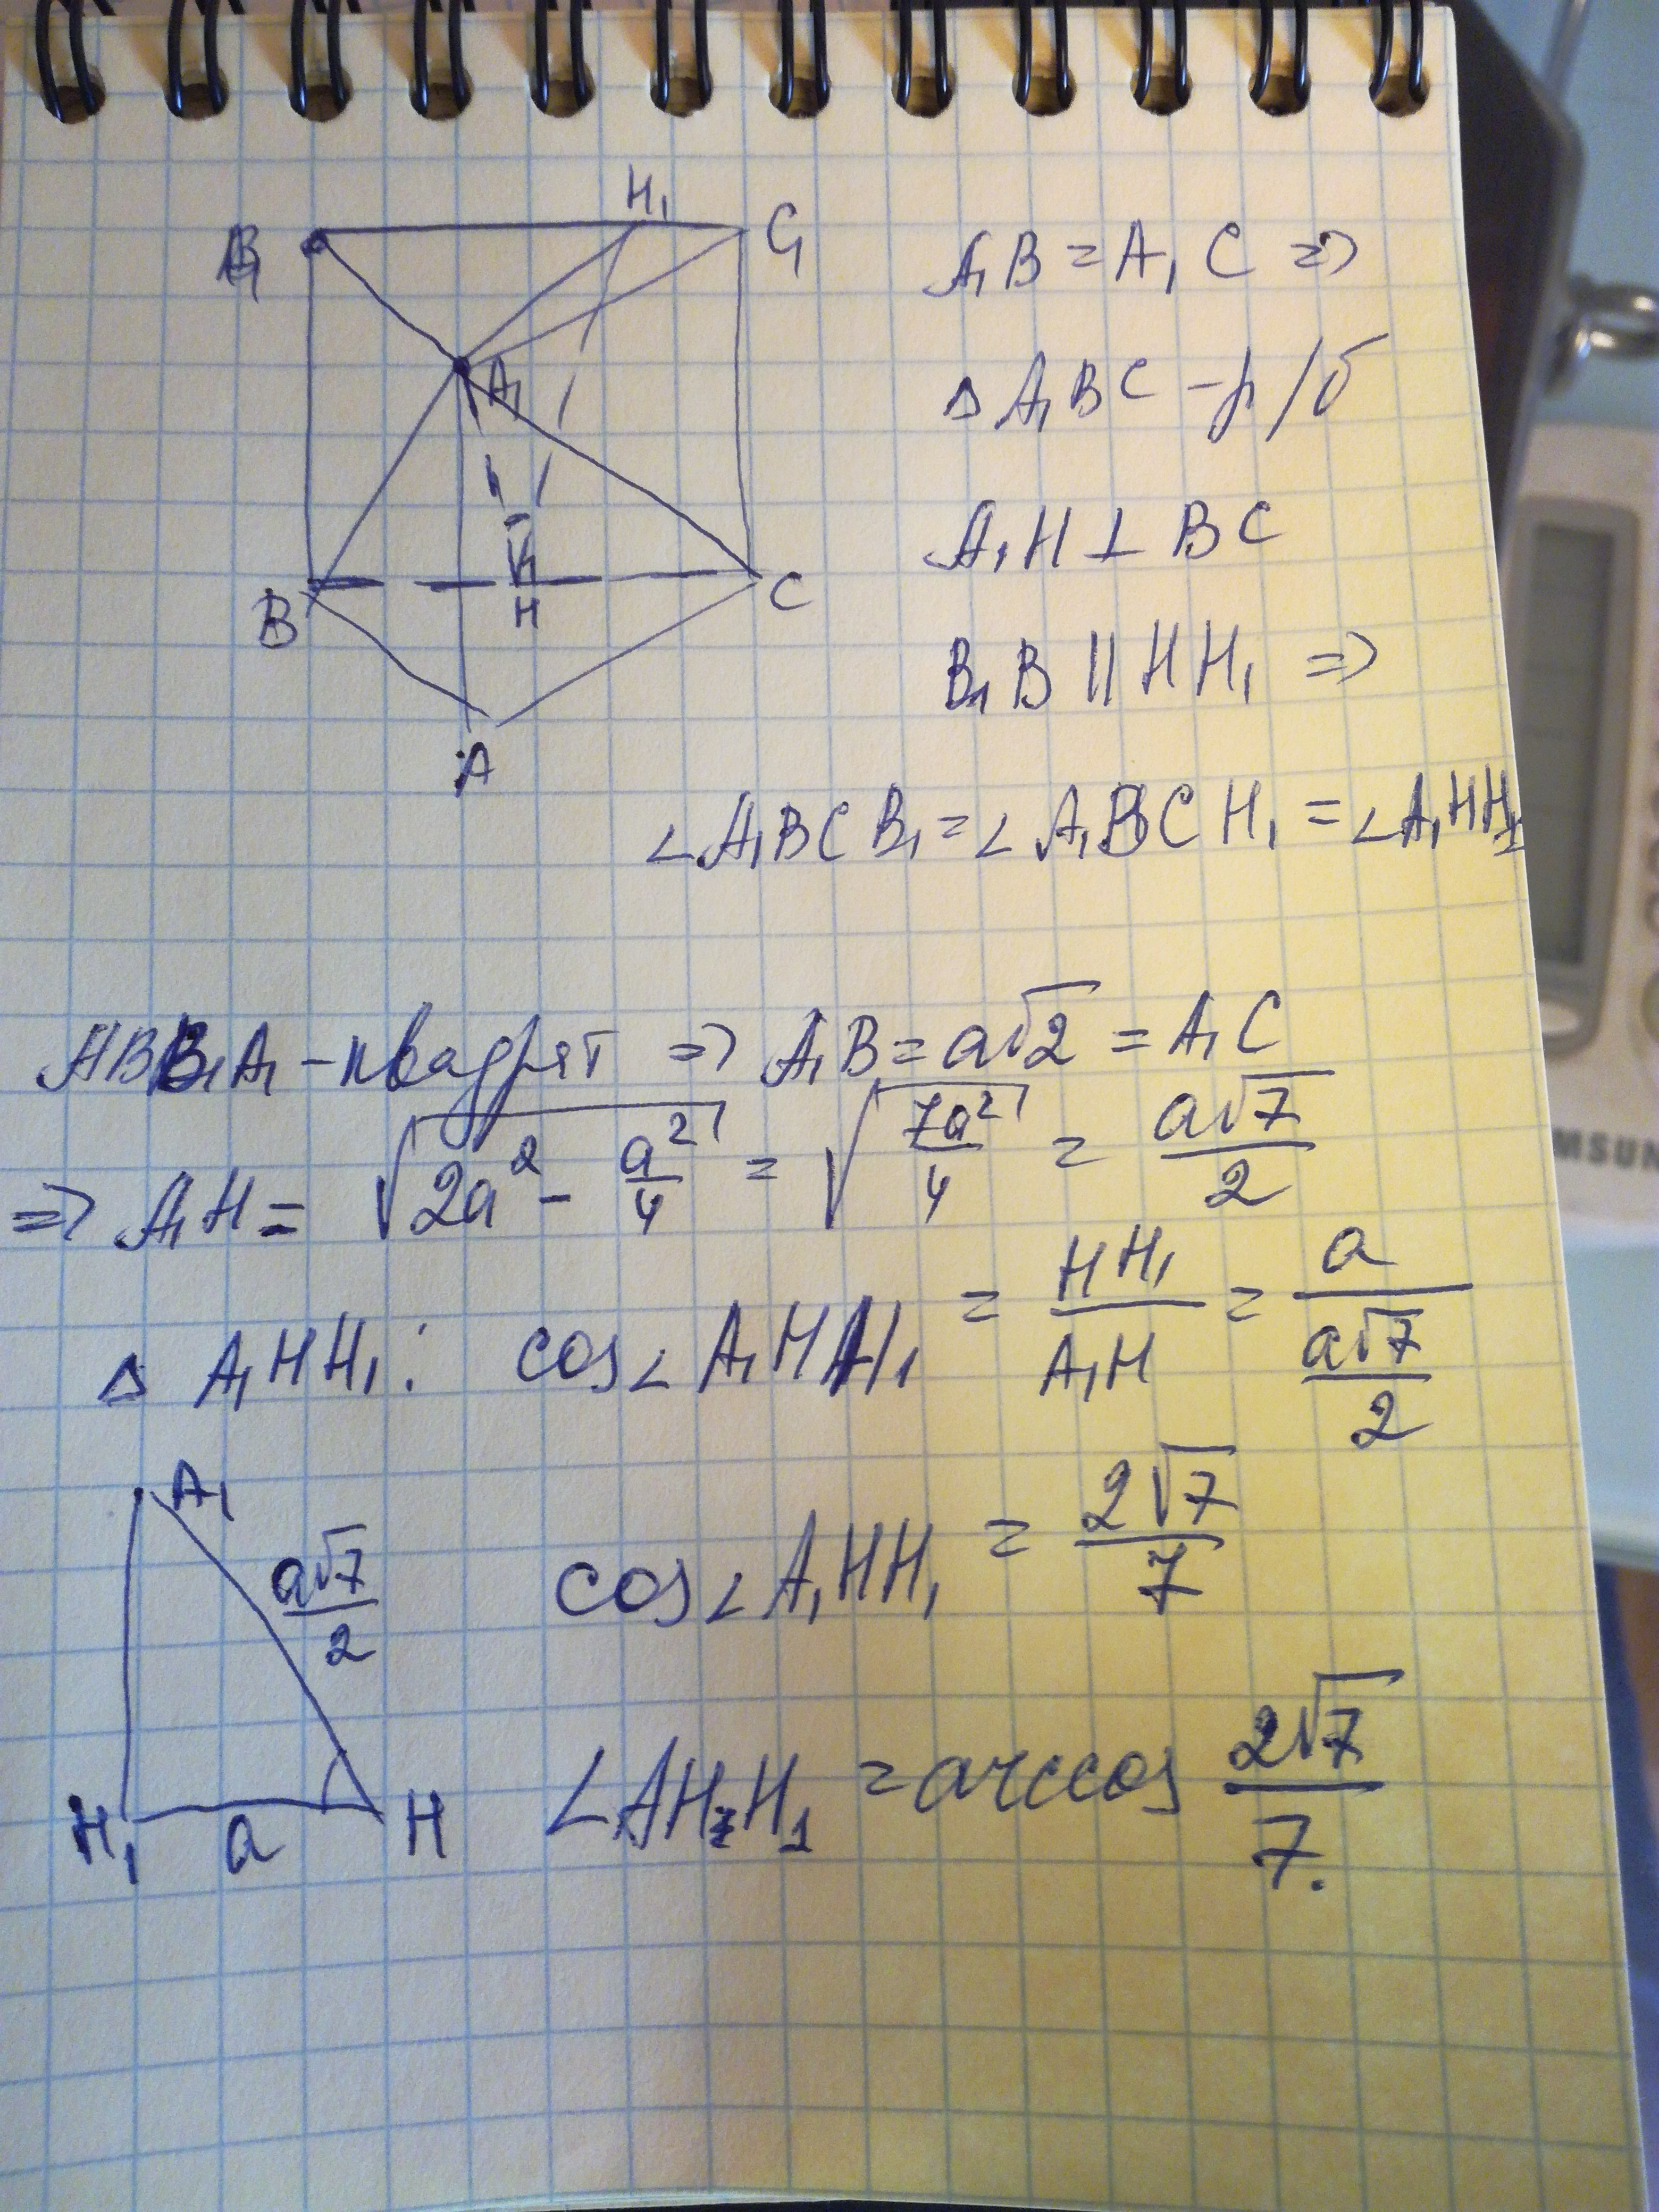 H₁
B₁
C₁
A₁
B
H
C
A
A₁B = A₁C ⇒
Δ A₁BC - р/б
A₁H ⊥ BC
B₁B || HH₁ ⇒
∠A₁BCB₁ = ∠A₁BCH₁ = ∠A₁HH₁
ABB₁A₁ - квадрят ⇒ A₁B = a√2 = A₁C
⇒ A₁H = √(2a² - a²/4) = √(7a²/4) = a√7/2
Δ A₁HH₁: cos∠A₁HH₁ = HH₁/A₁H = a/(a√7/2)
A₁
a√7/2
H₁
a
H
cos∠A₁HH₁ = 2√7/7
∠AH₁H₁ = arccos 2√7/7.
MSUN